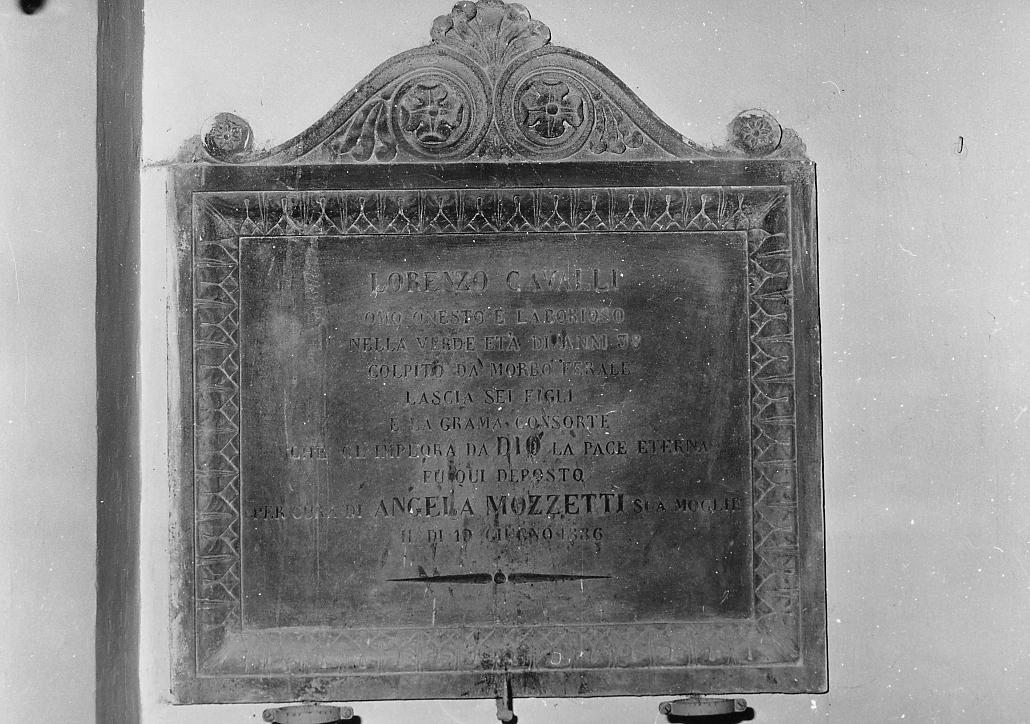 LORENZO CAVALLI
OMO ONESTO E LABORIOSO
NELLA VERDE ETÀ DI ANNI
COLPITO DA MORBO FERALE
LASCIA SEI FIGLI
E LA GRAMA CONSORTE
CHE GL'IMPLORA DA DIO LA PACE ETERNA
FU QUI DEPOSTO
PER DI ANGELA MOZZETTI SUA MOGLIE
IL DI 19 GIUGNO 1886